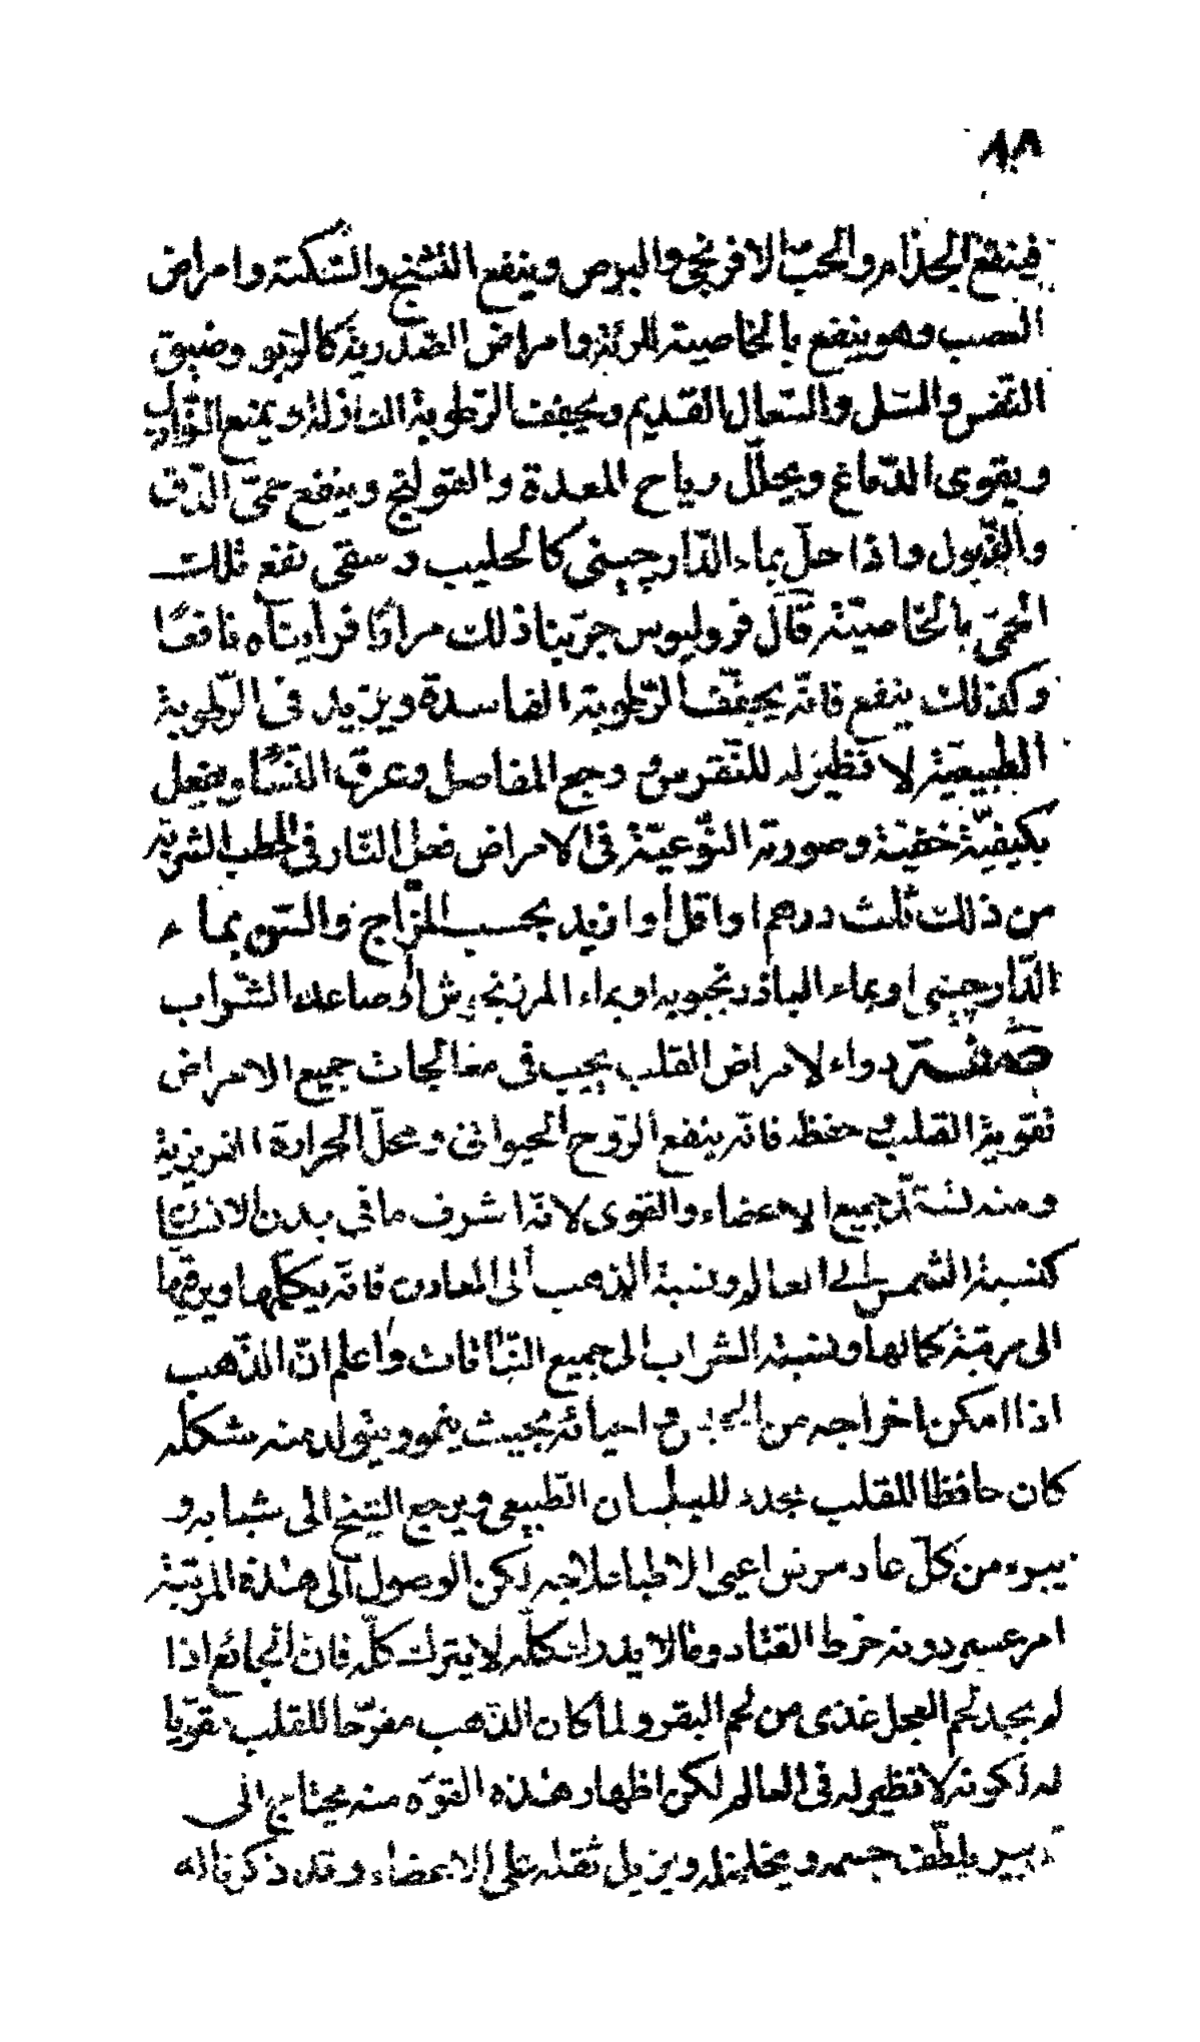 ١٠٨
فينفع الجذام والحبّ الافرنجى والبرص وينفع التشنج والسّكتة وامراض
العصب وهو ينفع بالخاصية للرئة وامراض الصّدرية كالرّبو وضيق
النّفس والسّل والسّعال القديم ويجفف الرّطوبة النازلة يمنع النّوازل
ويقوى الدّماغ ويحلّل رياح المعدة والقولنج وينفع حمىّ الدّق
والذّبول واذا حلّ بماء الدّارچينى كالحليب وسقى نفع تلك
الحمىّ بالخاصيّة قال قروليوس جرّبنا ذلك مرارًا فرأيناه نافعًا
وكذلك ينفع فانّه يجفّف الرّطوبة الفاسدة ويزيد فى الرّطوبة
الطبيعيّة لا نظير له للنّقرس و وجع المفاصل وعرق النّسا ويفعل
بكيفيّة خفيّة وصورته النّوعيّة فى الامراض فعل النّار فى الحطب الشربة
من ذلك ثلث درهم او اقل او ازيد بحسب المزاج والسّن بماء
الدّارچينى او بماء الباذرنجبويه او بماء المرزنجوش او صاعد الشّراب
صفة دواء لامراض القلب يجب فى معالجات جميع الامراض
تقوية القلب و حفظه فانّه ينفع الرّوح الحيوانى ومحلّ الحرارة الغريزية
ومنه جميع الاعضاء والقوى لانّه اشرف ما فى بدن الانسان
كنسبة الشمس الى العالم ونسبة الذهب الى المعادن فانّه يكمّلها ويرقيها
الى مرتبة كمالها ونسبة الشراب الى جميع النّباتات واعلم انّ الذّهب
اذا امكن اخراجه من و احيائه بحيث ينمو ويتولد منه مشكله
كان حافظا للقلب مجدد للبلسان الطّبيعى ويرجع الشيخ الى شبابه و
يبرء من كلّ عاد مرض اعيى الاطباء علاجه لكن الوصول الى هذه المرتبة
امر عسير دونه خرط القتاد وما لا يدرك كلّه لا يترك كلّه فان الجائع اذا
لم يجد لحم العجل غذى من لحم البقر ولما كان الذّهب مفرّحا للقلب مقوّيا
له لكونه لا نظير له فى العالم لكن اظهار هذه القوّه منه يحتاج الى
تدبير يلطّف جسمه ويخلخله ويزيل ثقله على الاعضاء وقد ذكرنا له